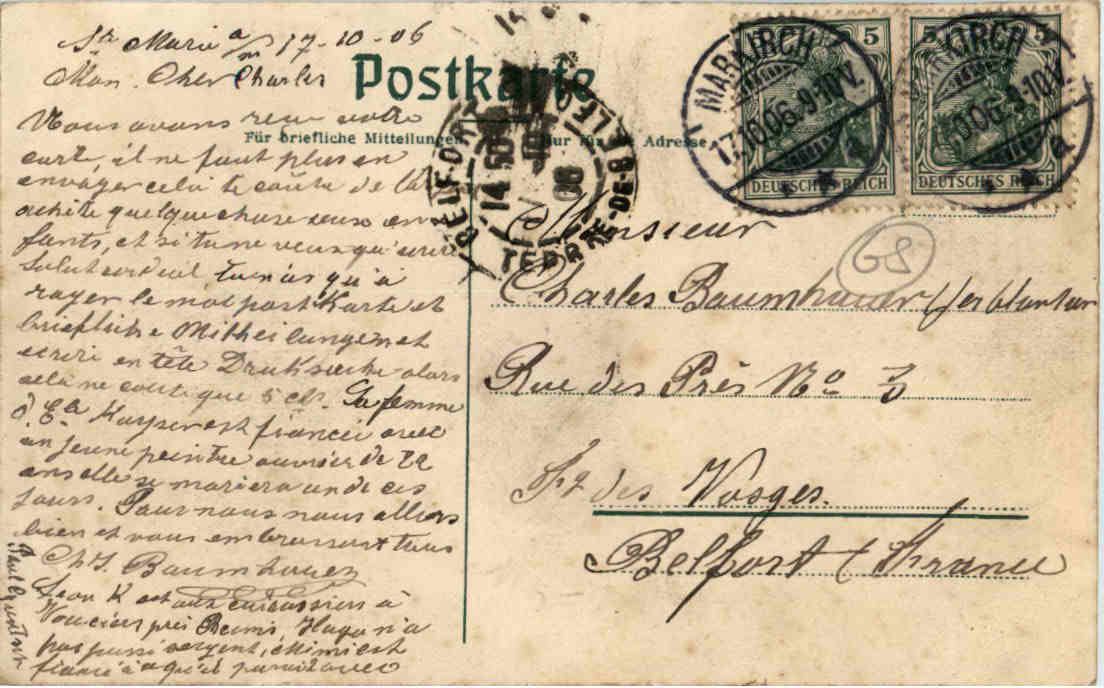 Ste Marie a/m 17-10-06
Mon Cher Charles
Postkarte
Für briefliche Mitteilungen
Nur für Adresse
Nous avons reçu votre
carte, il ne faut plus en
envoyer cela te coûte de l'a
achète quelque chose aux en
fants, et si tu ne veux qu'écrire
salut tu n'as qu'à
rayer le mot postkarte et
briefliche Mittheilungen et
ecrire en tête Druksache alors
cela ne coute que 5 cts. La femme
d'Ed Kayser est fiancée avec
un jeune peintre ouvrier de 22
ans elle se mariera un de ces
jours. Pour nous nous allons
bien et vous embrassons tous
Chs Baumhauer
Leon K est aux cuirassiers à
Vouciers près Reims, Hugo n'a
pas passé sergent, Mimi est
fiancé à qu'il parait avec
Paul
MARKIRCH
17.10.06.9-10V.
a
5
DEUTSCHES REICH
MARKIRCH
.10.06.9-10V.
a
5
DEUTSCHES REICH
BELFORT
TERRRE-DE-BELFO
14 50
06
68
Monsieur
Charles Baumhauer ferblantier
Rue des Près No 3
Fg des Vosges.
Belfort (France